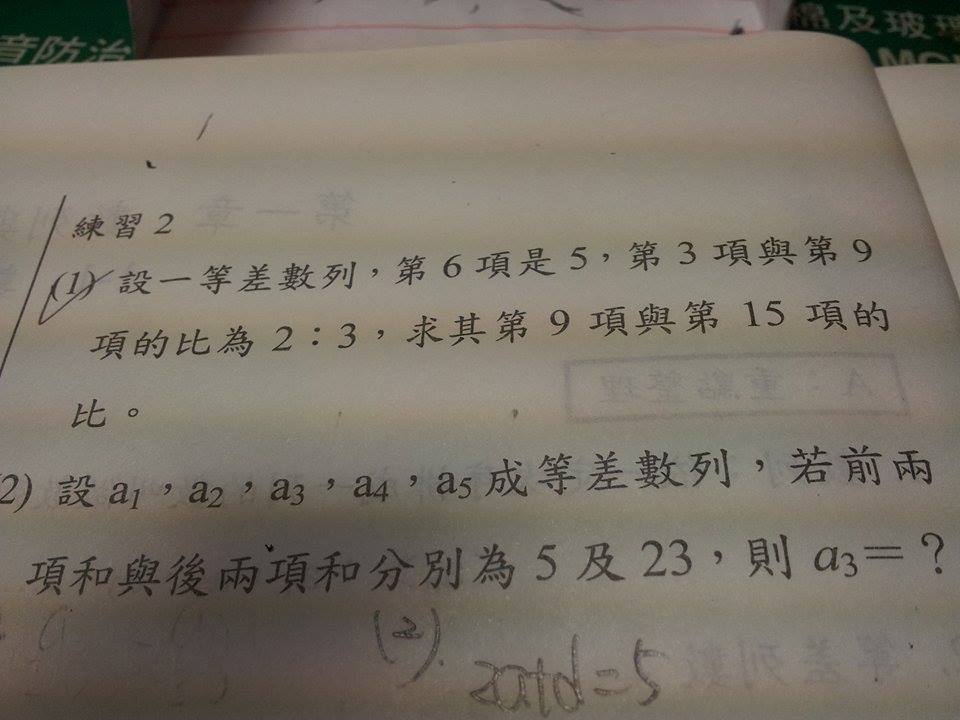 音防治
及玻璃
練習 2
(1) 設一等差數列，第 6 項是 5，第 3 項與第 9
項的比為 2：3，求其第 9 項與第 15 項的
比。
2) 設 a₁，a₂，a₃，a₄，a₅ 成等差數列，若前兩
項和與後兩項和分別為 5 及 23，則 a₃＝？
(2).
2a+d=5